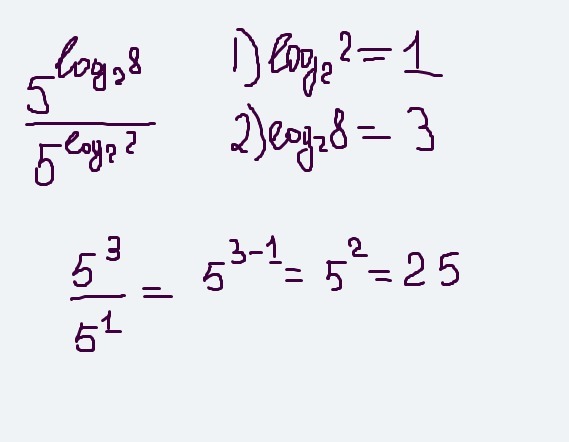 5^{log_2 8} / 5^{log_2 2}
1) log_2 2 = 1
2) log_2 8 = 3
5^3 / 5^1 = 5^{3-1} = 5^2 = 25